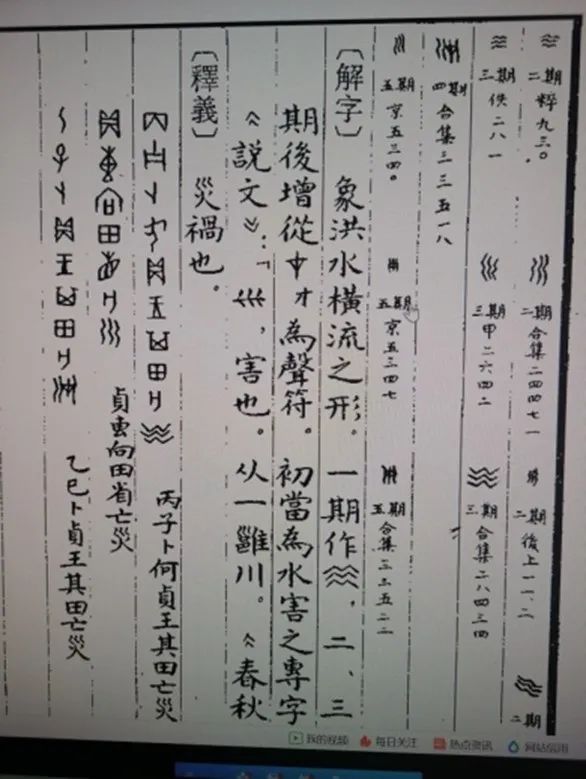 二期 粹九三〇
二期 合集二四四七一
二期 後上一一.二
二期
三期 佚二八一
三期 甲二六四二
三期 合集二八四三四
四期 合集三三五一八
五期 京五三四〇
五期 京五三四七
五期 合集三三五二二
〔解字〕 象洪水橫流之形。一期作，二、三
期後增從屮才為聲符。初當為水害之專字
《說文》：「𡿧，害也。从一雝川。《春秋
〔釋義〕 災禍也。
丙子卜何貞王其田亡災
貞叀向田省亡災
乙巳卜貞王其田亡災
我的视频 每日关注 热点资讯 网站信用